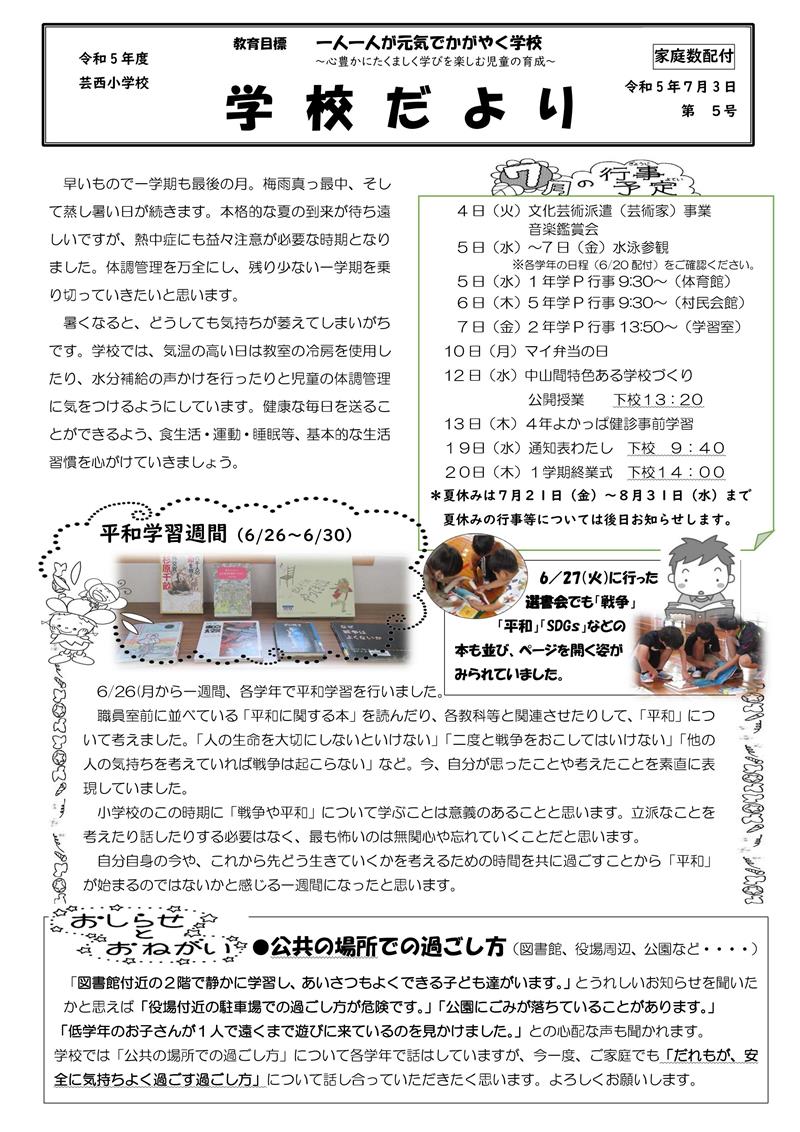 令和５年度
芸西小学校
教育目標　一人一人が元気でかがやく学校
～心豊かにたくましく学びを楽しむ児童の育成～
学校だより
家庭数配付
令和５年７月３日
第　５号
早いもので一学期も最後の月。梅雨真っ最中、そし
て蒸し暑い日が続きます。本格的な夏の到来が待ち遠
しいですが、熱中症にも益々注意が必要な時期となり
ました。体調管理を万全にし、残り少ない一学期を乗
り切っていきたいと思います。
暑くなると、どうしても気持ちが萎えてしまいがち
です。学校では、気温の高い日は教室の冷房を使用し
たり、水分補給の声かけを行ったりと児童の体調管理
に気をつけるようにしています。健康な毎日を送るこ
とができるよう、食生活・運動・睡眠等、基本的な生活
習慣を心がけていきましょう。
７月の行事予定
４日（火）文化芸術派遣（芸術家）事業
音楽鑑賞会
５日（水）～７日（金）水泳参観
※各学年の日程（6/20 配付）をご確認ください。
５日（水）１年学Ｐ行事 9:30～（体育館）
６日（木）５年学Ｐ行事 9:30～（村民会館）
７日（金）２年学Ｐ行事 13:50～（学習室）
１０日（月）マイ弁当の日
１２日（水）中山間特色ある学校づくり
公開授業　下校１３：２０
１３日（木）４年よかっぱ健診事前学習
１９日（水）通知表わたし　下校　９：４０
２０日（木）１学期終業式　下校１４：００
＊夏休みは７月２１日（金）～８月３１日（水）まで
夏休みの行事等については後日お知らせします。
平和学習週間（6/26～6/30）
６／27(火)に行った
選書会でも「戦争」
「平和」「SDGs」などの
本も並び、ページを開く姿が
みられていました。
6/26(月から一週間、各学年で平和学習を行いました。
職員室前に並べている「平和に関する本」を読んだり、各教科等と関連させたりして、「平和」につ
いて考えました。「人の生命を大切にしないといけない」「二度と戦争をおこしてはいけない」「他の
人の気持ちを考えていれば戦争は起こらない」など。今、自分が思ったことや考えたことを素直に表
現していました。
小学校のこの時期に「戦争や平和」について学ぶことは意義のあることと思います。立派なことを
考えたり話したりする必要はなく、最も怖いのは無関心や忘れていくことだと思います。
自分自身の今や、これから先どう生きていくかを考えるための時間を共に過ごすことから「平和」
が始まるのではないかと感じる一週間になったと思います。
おしらせ
と
おねがい
●公共の場所での過ごし方（図書館、役場周辺、公園など・・・・）
「図書館付近の２階で静かに学習し、あいさつもよくできる子ども達がいます。」とうれしいお知らせを聞いた
かと思えば「役場付近の駐車場での過ごし方が危険です。」「公園にごみが落ちていることがあります。」
「低学年のお子さんが１人で遠くまで遊びに来ているのを見かけました。」との心配な声も聞かれます。
学校では「公共の場所での過ごし方」について各学年で話はしていますが、今一度、ご家庭でも「だれもが、安
全に気持ちよく過ごす過ごし方」について話し合っていただきたく思います。よろしくお願いします。